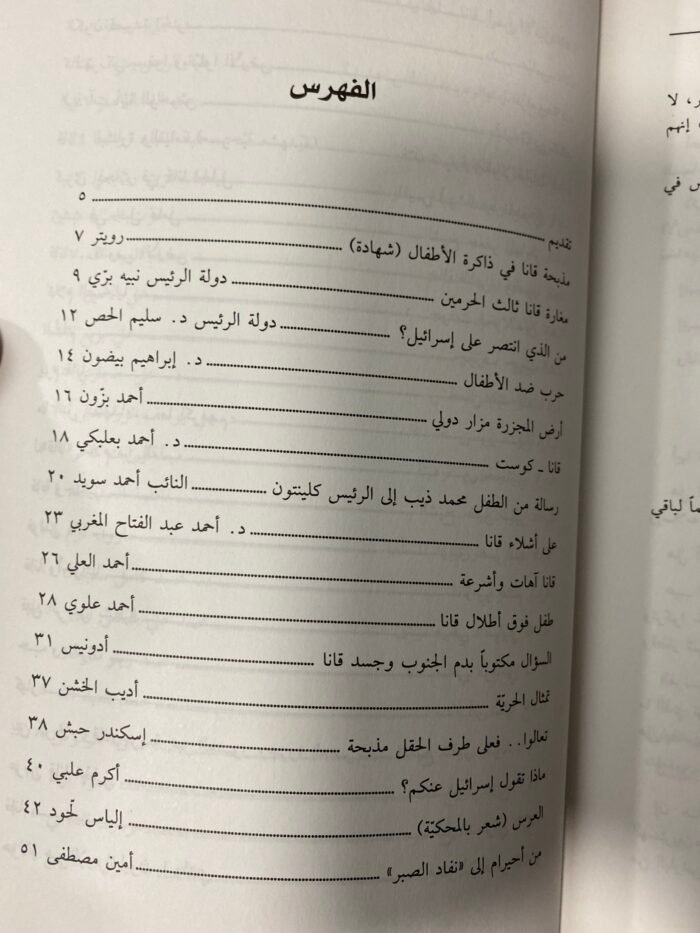 الفهرس
تقديم ........ ٥
مذبحة قانا في ذاكرة الأطفال (شهادة) ........ رويتر ٧
مغارة قانا ثالث الحرمين ........ دولة الرئيس نبيه برّي ٩
من الذي انتصر على إسرائيل؟ ........ دولة الرئيس د. سليم الحص ١٢
حرب ضد الأطفال ........ د. إبراهيم بيضون ١٤
أرض المجزرة مزار دولي ........ أحمد بزّون ١٦
قانا ـ كوست ........ د. أحمد بعلبكي ١٨
رسالة من الطفل محمد ذيب إلى الرئيس كلينتون ........ النائب أحمد سويد ٢٠
على أشلاء قانا ........ د. أحمد عبد الفتاح المغربي ٢٣
قانا آهات وأشرعة ........ أحمد العلي ٢٦
طفل فوق أطلال قانا ........ أحمد علوي ٢٨
السؤال مكتوباً بدم الجنوب وجسد قانا ........ أدونيس ٣١
تمثال الحريّة ........ أديب الخشن ٣٧
تعالوا.. فعلى طرف الحقل مذبحة ........ إسكندر حبش ٣٨
ماذا تقول إسرائيل عنكم؟ ........ أكرم علبي ٤٠
العرس (شعر بالمحكيّة) ........ إلياس لحّود ٤٢
من أحيرام إلى «نفاد الصبر» ........ أمين مصطفى ٥١
ر، لا
إنهم
س في
ماً لباقي